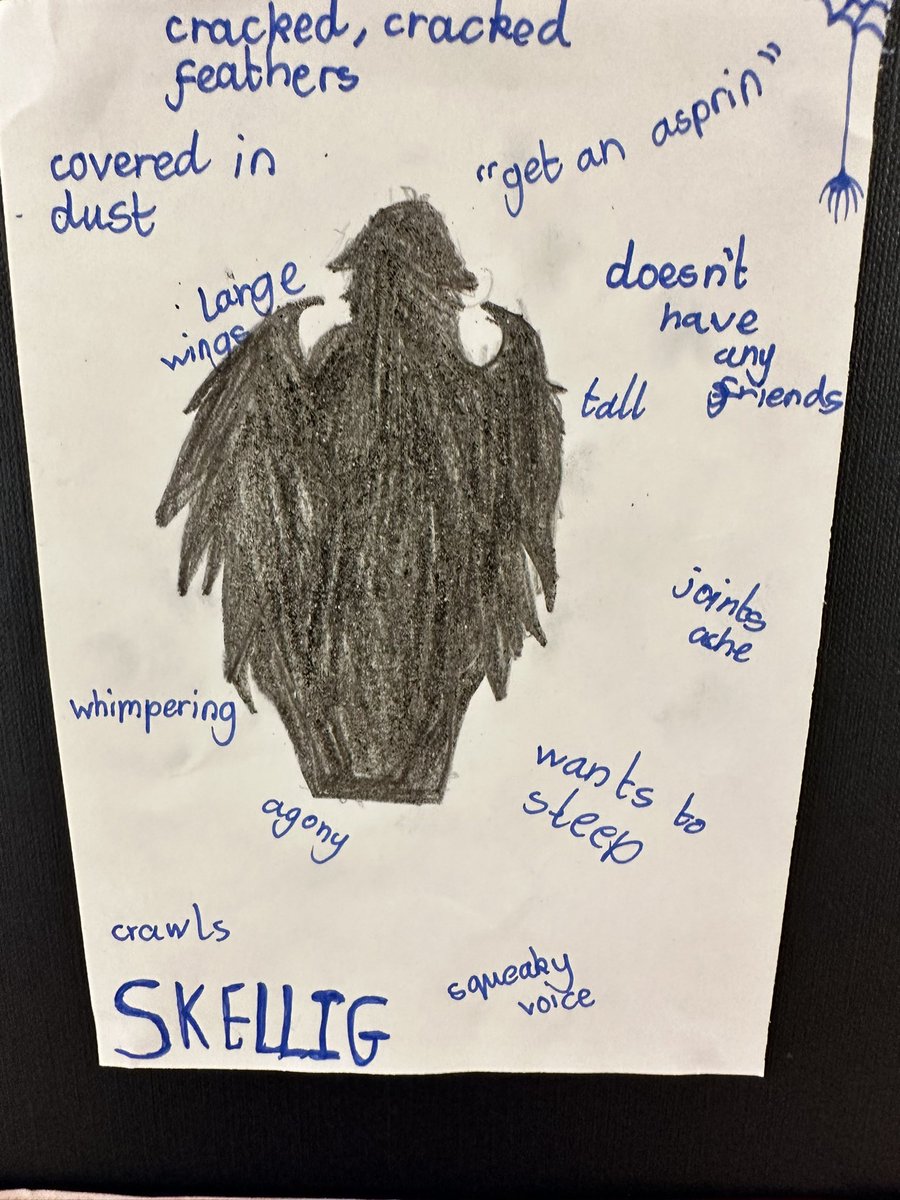 cracked, cracked
feathers
covered in
dust
"get an asprin"
large
wings
doesn't
have
any
friends
tall
joints
ache
whimpering
wants to
sleep
agony
crawls
squeaky
voice
SKELLIG